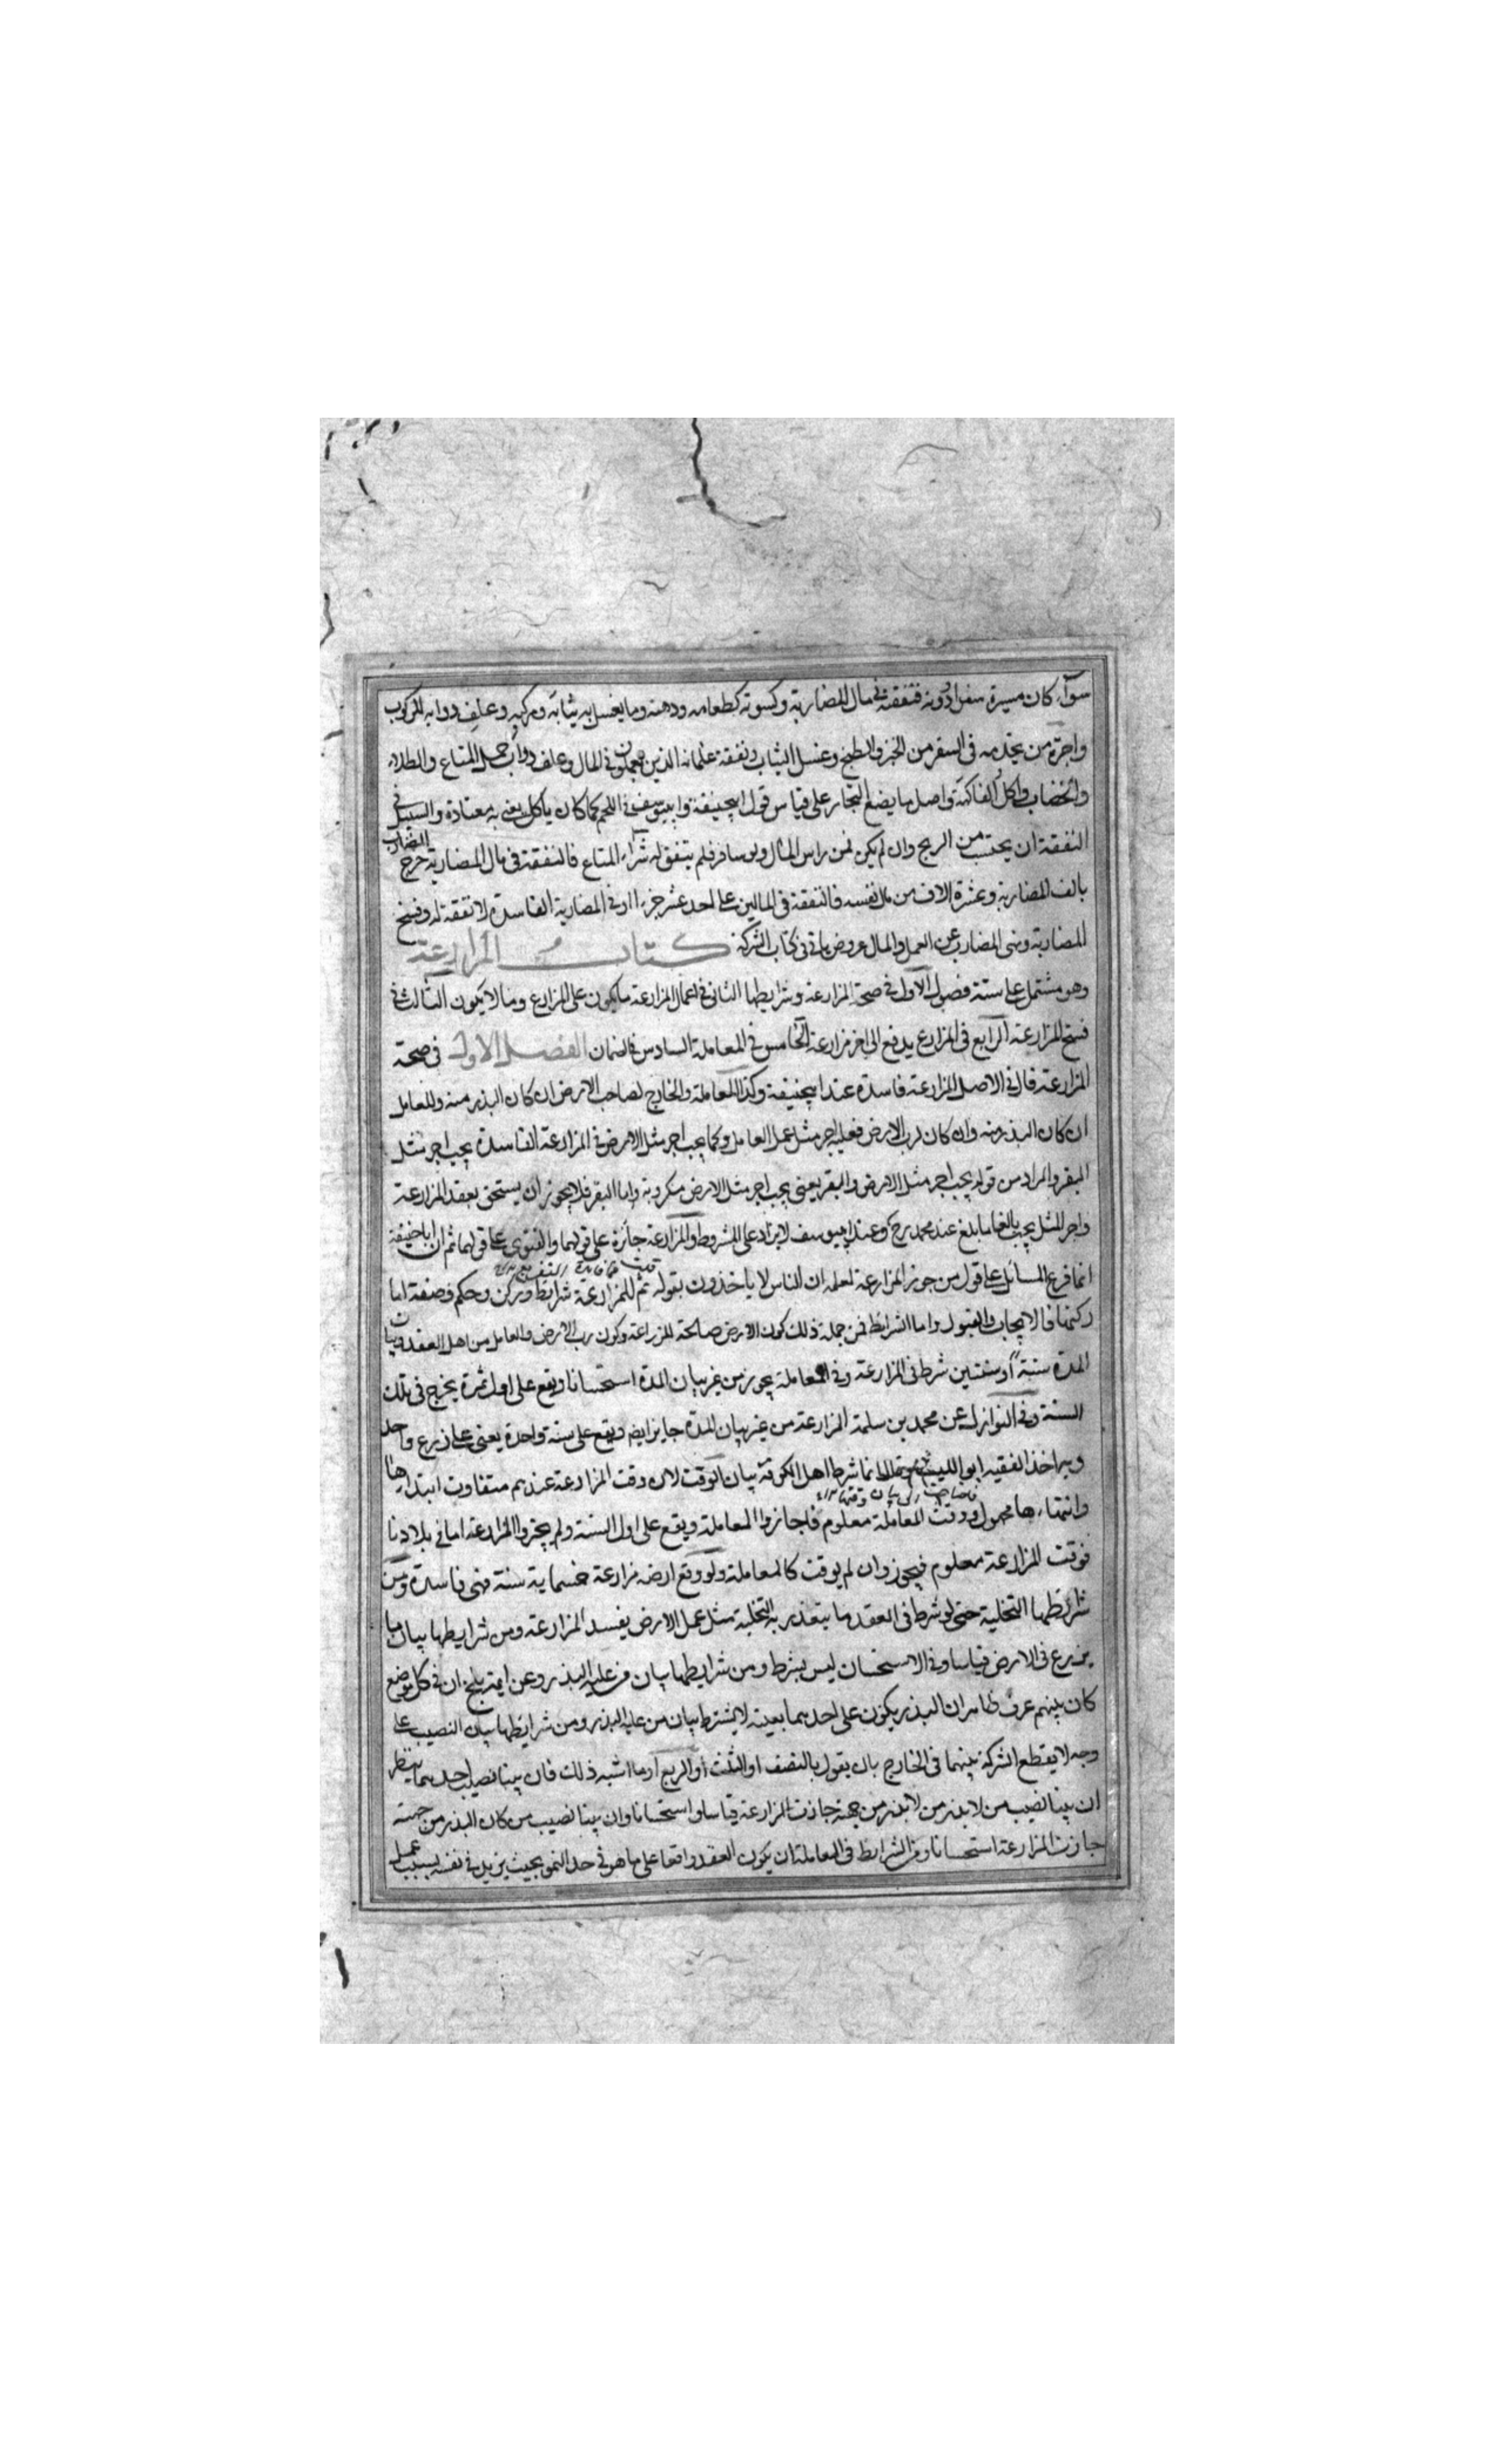 سوآء كان مسيرة سفر او دونه فنفقته فى مال المضاربة وكسوته كطعامه ودهنه وما يغسل به ثيابه ومركبه وعلف دوابه للركوب
واجرة من يخدمه فى السفر من الخبز والطبخ وغسل الثياب ونفقة غلمانه الذين يعملون فى المال وعلف دواب حمل المتاع والطلاء
والخضاب واكل الفاكهة واصل ما يضع التجار على قياس قول ابيحنيفة وابيوسف فى اللحم كما كان ياكل يعنى به معتادة والسبيل فى
النفقة ان يحتسب من الربح وان لم يكن فمن راس المال ولو سافر فلم يتفق له شراء المتاع فالنفقة فى مال المضاربة خرج المضارب
بالف المضاربة وعشرة الاف من مال نفسه فالنفقة فى المالين على احد عشر جزءا وفى المضاربة الفاسدة لا نفقة له وفسخ
المضاربة ونهى المضارب عن العمل والمال عروض ياتى فى كتاب الشركة كتاب المزارعة
وهو مشتمل على ستة فصول الاول فى صحة المزارعة وشرايطها الثانى فى اعمال المزارعة ما يكون على المزارع وما لا يكون الثالث فى
فسخ المزارعة الرابع فى المزارع يدفع الى اخر مزارعة الخامس فى المعاملة السادس فى الضمان الفصل الاول فى صحة
المزارعة قال فى الاصل المزارعة فاسدة عند ابيحنيفة وكذا المعاملة والخارج لصاحب الارض ان كان البذر منه وللعامل
ان كان البذر منه وان كان لرب الارض فعليه اجر مثل عمل العامل وكما يجب اجر مثل الارض فى المزارعة الفاسدة يجب اجر مثل
البقر والمراد من قوله يجب اجر مثل الارض والبقر يعنى يجب اجر مثل الارض مكروبة واما البقر فلا يجوز ان يستحق بعقد المزارعة
واجر المثل يجب بالغا ما بلغ عند محمد رح وعند ابيوسف لا يزاد على المشروط والمزارعة جائزة على قولهما والفتوى على قولهما ثم ان اباحنيفة
انما فرع المسائل على قول من جوز المزارعة لعلمه ان الناس لا ياخذون بقوله ثم للمزارعة شرايط وركن وحكم وصفة اما
ركنها فالايجاب والقبول واما الشرائط فمن جملة ذلك كون الارض صالحة للزراعة وكون رب الارض والعامل من اهل العقد وبيان
المدة سنة او سنتين شرط فى المزارعة وفى المعاملة يجوز من غير بيان المدة استحسانا ويقع على اول ثمرة يخرج فى تلك
السنة وفى النوازل عن محمد بن سلمة المزارعة من غير بيان المدة جايز ايض ويقع على سنة واحدة يعنى على زرع واحد
وبه اخذ الفقيه ابو الليث وقال انما شرط اهل الكوفة بيان الوقت لان وقت المزارعة عندهم متفاوت ابتداءها
وانتهاءها مجهول ووقت المعاملة معلوم فاجازوا المعاملة ويقع على اول السنة ولم يجيزوا المزارعة اما فى بلادنا
فوقت المزارعة معلوم فيجوز وان لم يوقت كالمعاملة ولو دفع ارضه مزارعة خمسماية سنة فهى فاسدة ومن
شرائطها التخلية حتى لو شرط فى العقد ما يتعذر به التخلية مثل عمل الارض يفسد المزارعة ومن شرايطها بيان ما
يزرع فى الارض قياسا وفى الاستحسان ليس بشرط ومن شرايطها بيان من عليه البذر وعن ايمة بلخ ان فى كل موضع
كان بينهم عرف ظاهر ان البذر يكون على احدهما بعينه لا يشترط بيان من عليه البذر ومن شرايطها بيان النصيب على
وجه لا يقطع الشركة بينهما فى الخارج بان يقول بالنصف او الثلث او الربع او ما اشبه ذلك فان بينا نصيب احدهما ينظر
ان بينا نصيب من لا بذر من جهته جازت المزارعة قياسا واستحسانا وان بينا نصيب من كان البذر من جهته
جازت المزارعة استحسانا ومن الشرايط فى المعاملة ان يكون العقد واقعا على ما هو فى حد النمو بحيث يزيد فى نفسه بسبب عمل